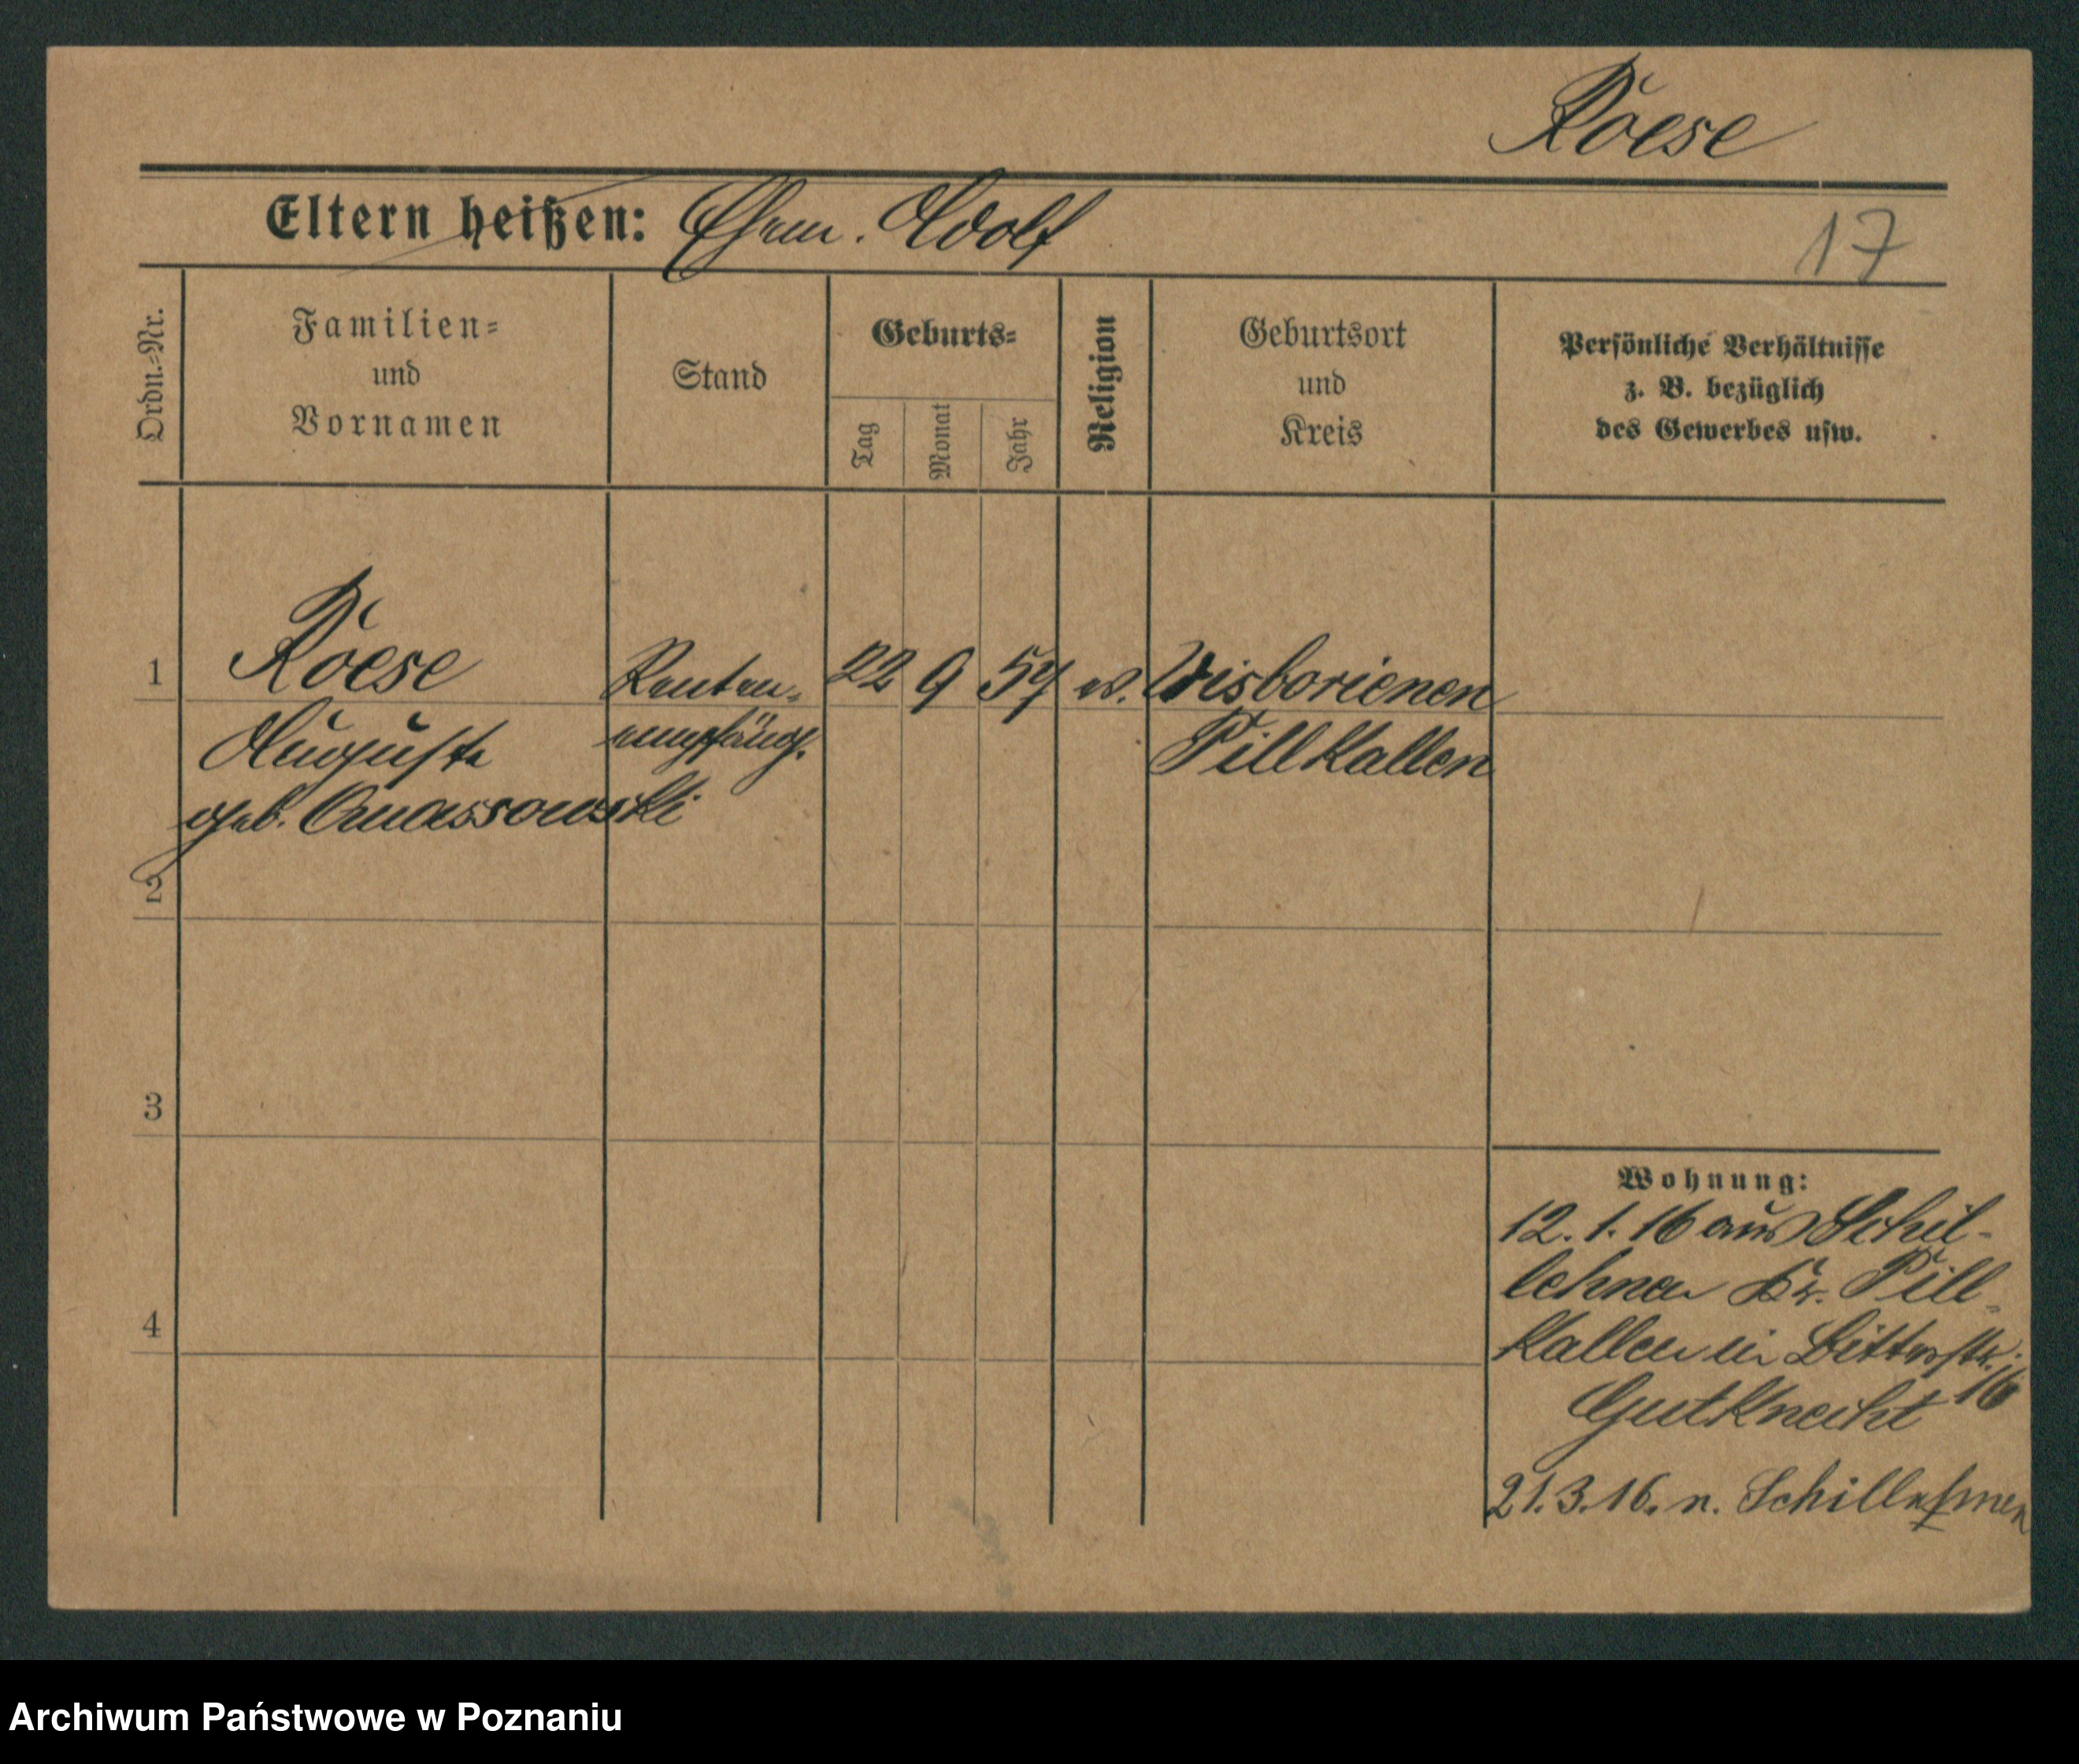 Röese
Eltern heißen: Ehem. Adolf
17
Ordn.-Nr.
Familien-
und
Vornamen
Stand
Geburts-
Tag
Monat
Jahr
Religion
Geburtsort
und
Kreis
Persönliche Verhältnisse
z. B. bezüglich
des Gewerbes usw.
1
Röese
Renten-
22 9 57 ev. Wisborienen
Auguste
empfäng.
Pillkallen
geb. Quassowski
2
3
4
Wohnung:
12. 1. 16 aus Schil-
lehnen Kr. Pill-
kallen in Bitterstr.
16
Gutknecht
21.3.16. n. Schillehnen
Archiwum Państwowe w Poznaniu